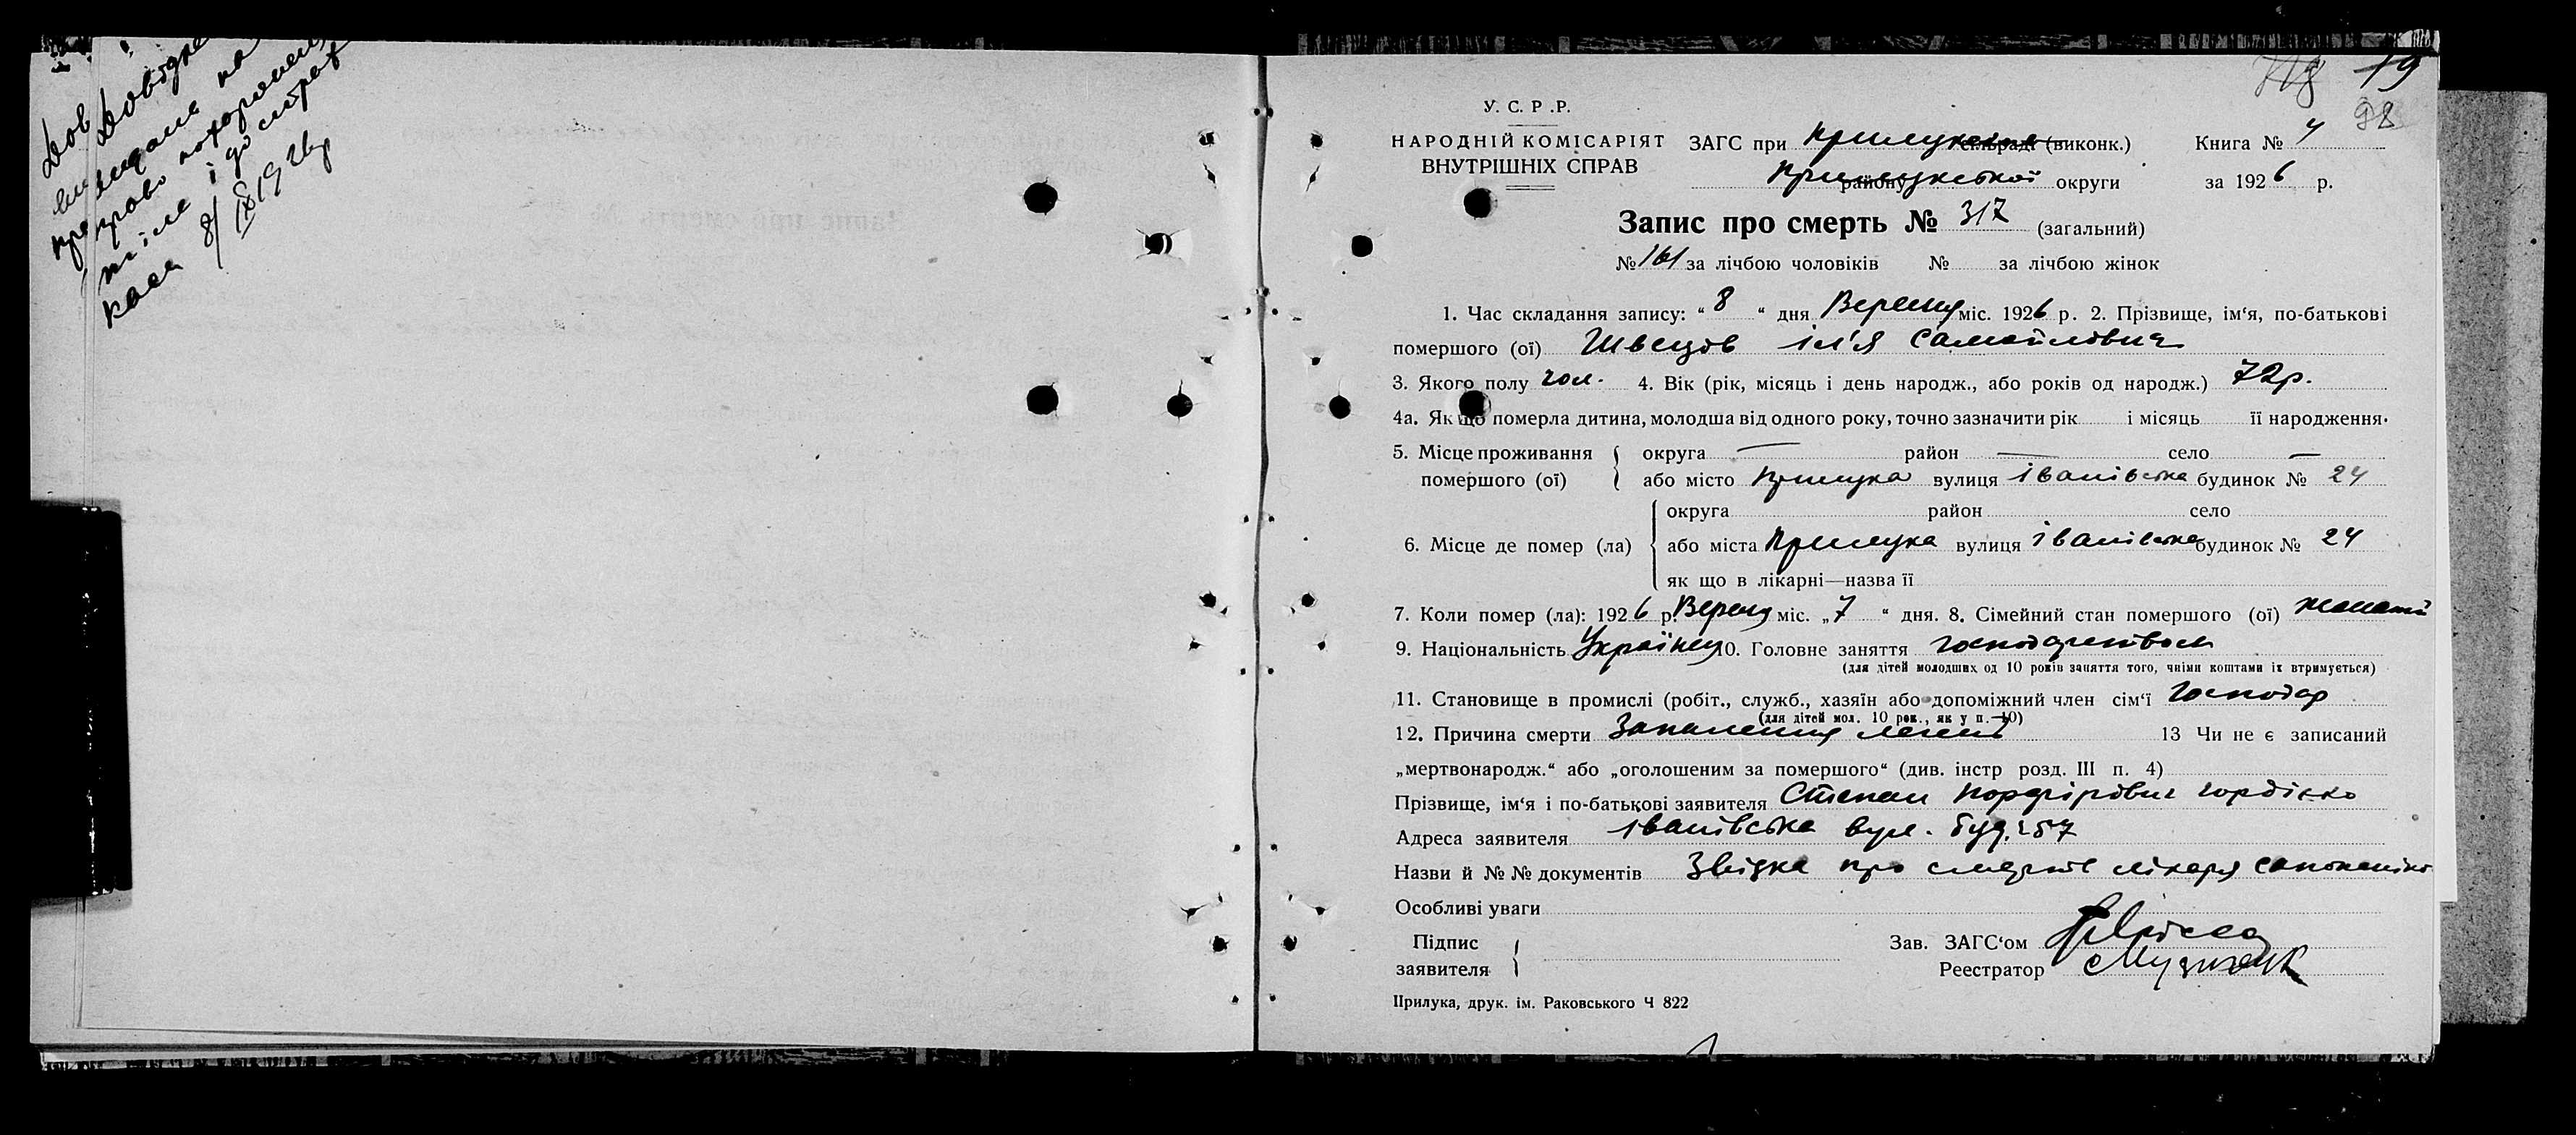 Довідка
видана на
право похорону
тіла і до страх
каси 8/IX 1926 р
19
98
У. С. Р. Р.
НАРОДНІЙ КОМІСАРІЯТ
ВНУТРІШНІХ СПРАВ
ЗАГС при Прилуцькому сільраді (виконк.) Книга № 4
Прилуцької району округи за 1926 р.
Запис про смерть № 317 (загальний)
№ 161 за лічбою чоловіків № за лічбою жінок
1. Час складання запису: “ 8 “ дня Вересня міс. 1926 р. 2. Прізвище, ім‘я, по-батькові
помершого (ої) Швецов Ілля Самойлович
3. Якого полу чол. 4. Вік (рік, місяць і день народж., або років од народж.) 72 р.
4а. Як що померла дитина, молодша від одного року, точно зазначити рік і місяць її народження.
5. Місце проживання помершого (ої) { округа — район — село —
або місто Прилука вулиця Іванівська будинок № 24
6. Місце де помер (ла) { округа район село
або міста Прилука вулиця Іванівська будинок № 24
як що в лікарні—назва її
7. Коли помер (ла): 1926 р. Вересня міс. „7 “ дня. 8. Сімейний стан помершого (ої) жонатий
9. Національність Українець 10. Головне заняття господарством
(для дітей молодших од 10 років заняття того, чиїми коштами їх втримується)
11. Становище в промислі (робіт., служб., хазяїн або допоміжний член сім‘ї господар
(для дітей мол. 10 рок., як у п. 10)
12. Причина смерти Запалення легень 13 Чи не є записаний
„мертвонародж.“ або „оголошеним за помершого“ (див. інстр розд. III п. 4)
Прізвище, ім‘я і по-батькові заявителя Степан Порфірович Гордієнко
Адреса заявителя Іванівська вул. буд. 57
Назви й №№ документів Звідка про смерть лікаря
Особливі уваги
Підпис
заявителя {
Зав. ЗАГС‘ом
Реестратор
Прилука, друк. ім. Раковського Ч 822